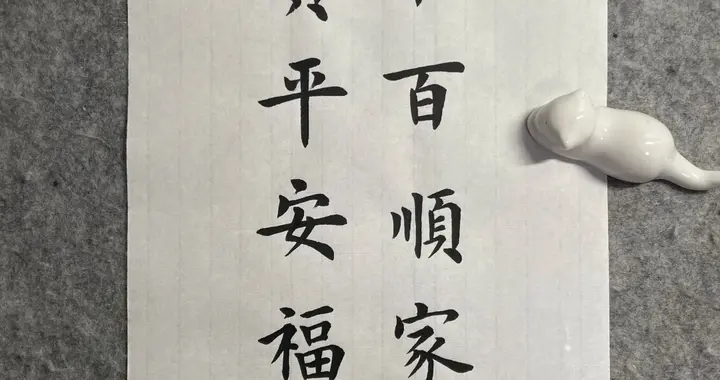 百順家
平安福